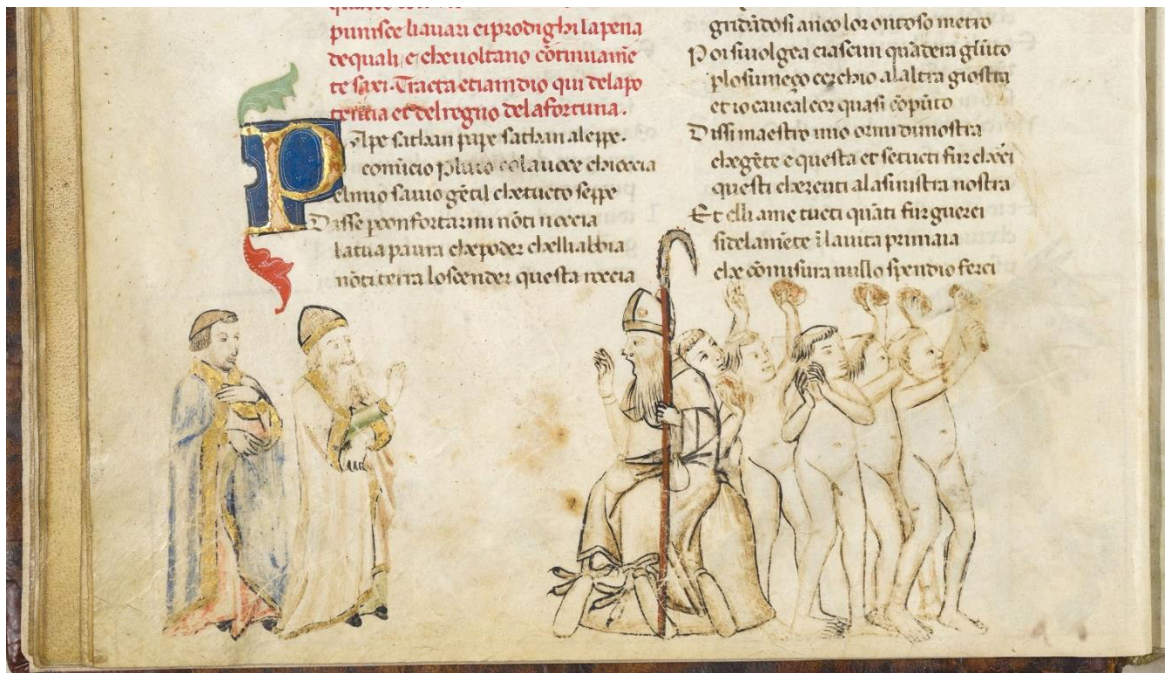 punisce li avari e i prodighi la pena
de quali, e che voltano cōtinuamē
te saxi. Tracta etiamdio qui dela po
tentia et del regno dela fortuna.
Pape sathan pape sathan aleppe.
comīcio pluto cola uoce chioccia
el mio sauio gētil che tucto seppe
Disse p confortarmi nō ti noccia
la tua paura che poder chelli abbia
nō ti terra lo scender questa roccia
gridādosi anco lor ontoso metro
Poi si uolgea ciascun quādera giūto
plo suo meço cerchio alaltra giostra
et io cauea l cor quasi cōpūto
Dissi maestro mio or mi dimostra
che gēte e questa et se tucti fur cherci
questi chercuti ala sinistra nostra
Et elli a me tucti quāti fur guerci
si dela mēte ī la uita primaia
che cō misura nullo spendio ferci